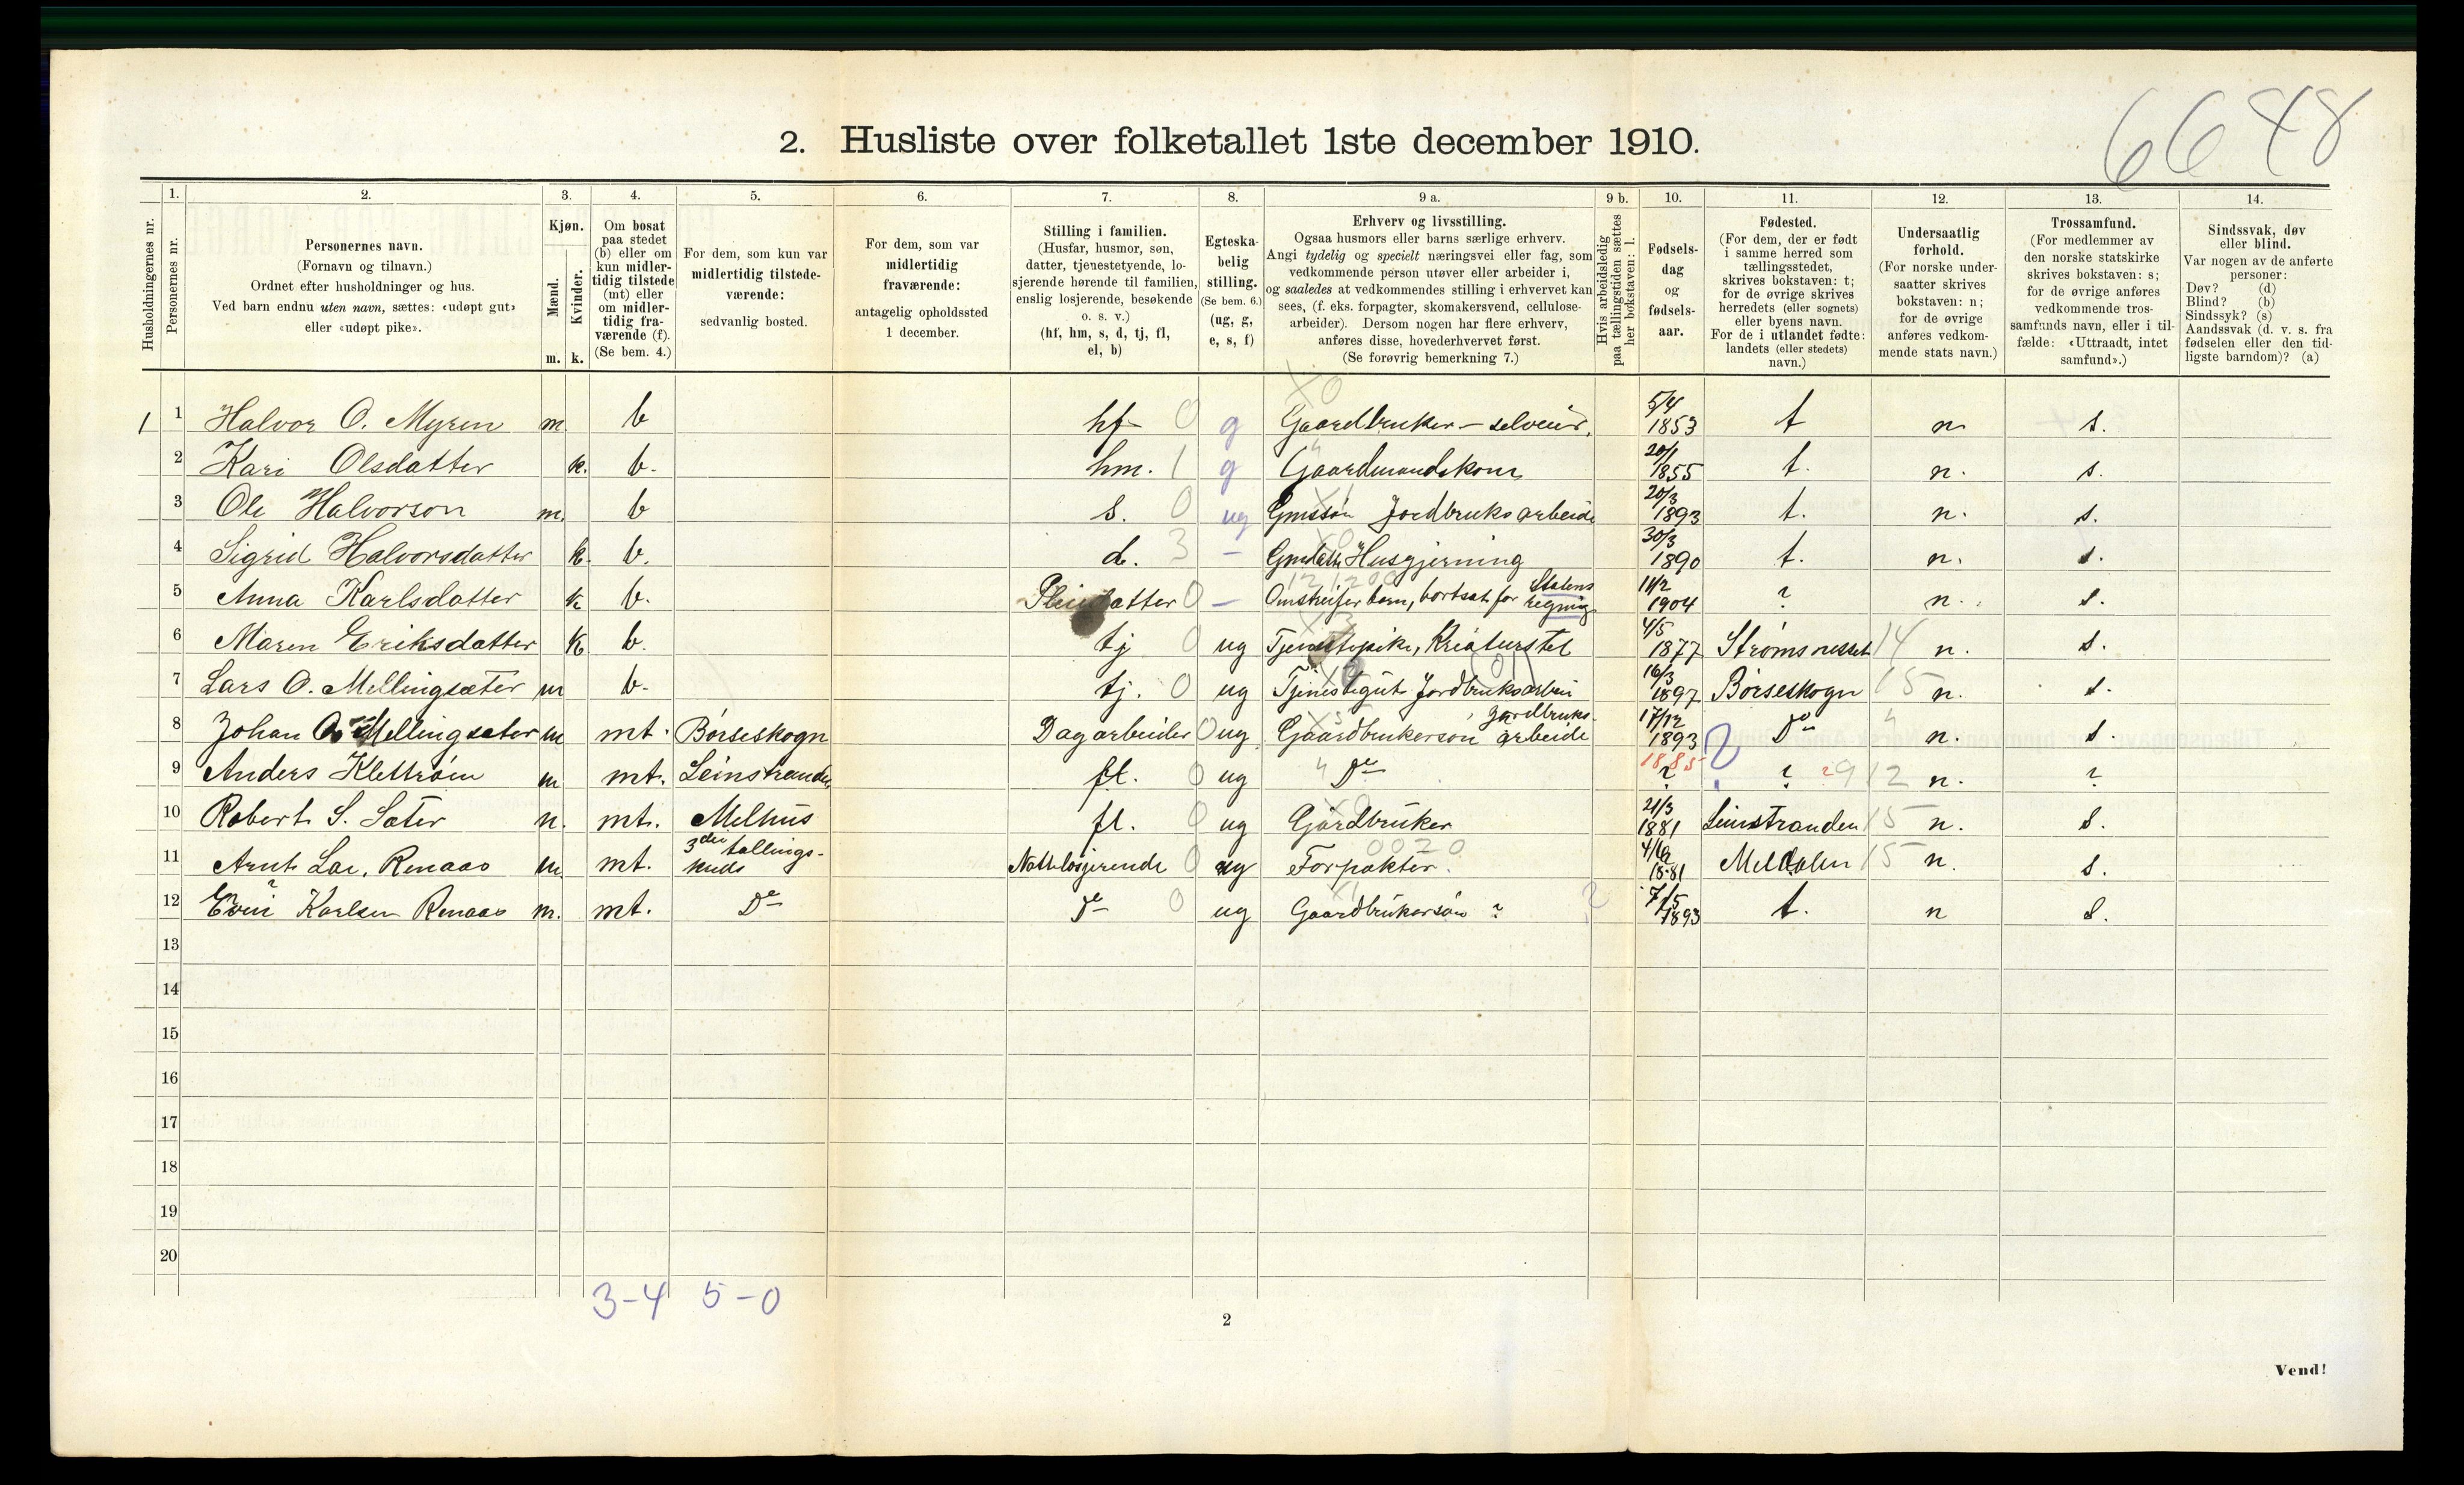 6648
2. Husliste over folketallet 1ste december 1910.
Husholdningernes nr.
1.
Personernes nr.
2.
Personernes navn.
(Fornavn og tilnavn.)
Ordnet efter husholdninger og hus.
Ved barn endnu uten navn, sættes: «udøpt gut»
eller «udøpt pike».
3.
Kjøn.
Mænd.
Kvinder.
m. k.
4.
Om bosat
paa stedet
(b) eller om
kun midler-
tidig tilstede
(mt) eller
om midler-
tidig fra-
værende (f).
(Se bem. 4.)
5.
For dem, som kun var
midlertidig tilstede-
værende:
sedvanlig bosted.
6.
For dem, som var
midlertidig
fraværende:
antagelig opholdssted
1 december.
7.
Stilling i familien.
(Husfar, husmor, søn,
datter, tjenestetyende, lo-
sjerende hørende til familien,
enslig losjerende, besøkende
o. s. v.)
(hf, hm, s, d, tj, fl,
el, b)
8.
Egteska-
belig
stilling.
(Se bem. 6.)
(ug, g,
e, s, f)
9 a.
Erhverv og livsstilling.
Ogsaa husmors eller barns særlige erhverv.
Angi tydelig og specielt næringsvei eller fag, som
vedkommende person utøver eller arbeider i,
og saaledes at vedkommendes stilling i erhvervet kan
sees, (f. eks. forpagter, skomakersvend, cellulose-
arbeider). Dersom nogen har flere erhverv,
anføres disse, hovederhvervet først.
(Se forøvrig bemerkning 7.)
9 b.
Hvis arbeidsledig
paa tællingstiden sættes
her bokstaven: l.
10.
Fødsels-
dag
og
fødsels-
aar.
11.
Fødested.
(For dem, der er født
i samme herred som
tællingsstedet,
skrives bokstaven: t;
for de øvrige skrives
herredets (eller sognets)
eller byens navn.
For de i utlandet fødte:
landets (eller stedets)
navn.)
12.
Undersaatlig
forhold.
(For norske under-
saatter skrives
bokstaven: n;
for de øvrige
anføres vedkom-
mende stats navn.)
13.
Trossamfund.
(For medlemmer av
den norske statskirke
skrives bokstaven: s;
for de øvrige anføres
vedkommende tros-
samfunds navn, eller i til-
fælde: «Uttraadt, intet
samfund».)
14.
Sindssvak, døv
eller blind.
Var nogen av de anførte
personer:
Døv? (d)
Blind? (b)
Sindssyk? (s)
Aandssvak (d. v. s. fra
fødselen eller den tid-
ligste barndom)? (a)
1 1 Halvor O. Myren m. b hf 0 g Gaardbruker – selveier. 5/4 1853 t n s.
2 Kari Olsdatter k. b. hm. 1 g Gaardmandskone 20/1 1855 t. n. s.
3 Ole Halvorson m. b s. 0 ug Gmssön Jordbruksarbeide 20/3 1893 t. n. s.
4 Sigrid Halvorsdatter k. b. d. 3 – Gmdatter Husgjerning 30/3 1890 t. n. s.
5 Anna Karlsdatter k b. Pleiedatter 0 – Omstreifer barn, bortsat for Statens regning 11/2 1904 ? n. s.
6 Maren Eriksdatter k b. tj 0 ug Tjenestepike, Kreaturstel 4/5 1877 Strømsnesset 14 n. s.
7 Lars O. Mellingsæter m b. tj. 0 ug Tjenestegut Jordbruksarbei 16/3 1897 Børseskogn 15 n. s.
8 Johan O. Mellingsæter m mt. Børseskogn Dagarbeider 0 ug Gaardbrukersøn Jordbruks- arbeide 17/12 1893 Do n. s.
9 Anders Klettrøm m mt. Leinstranden fl. 0 ug Do 1885 ? ? 912 n. ?
10 Robert S. Sæter m. mt. Melhus fl. 0 ug Gårdbruker 21/3 1881 Leinstranden 15 n. s.
11 Arnt Lar. Renaas m. mt. 3die tællings- kreds Nattlosjerende 0 ug Forpakter. 0020 1881 Meldalen 15 n. s.
12 Karlsen Renaas m. mt. Do Do 0 ug Gaardbrukersøn ? 7/5 1893 t. n s.
13
14
15
16
17
18
19
20
3–4 5–0
2
Vend!